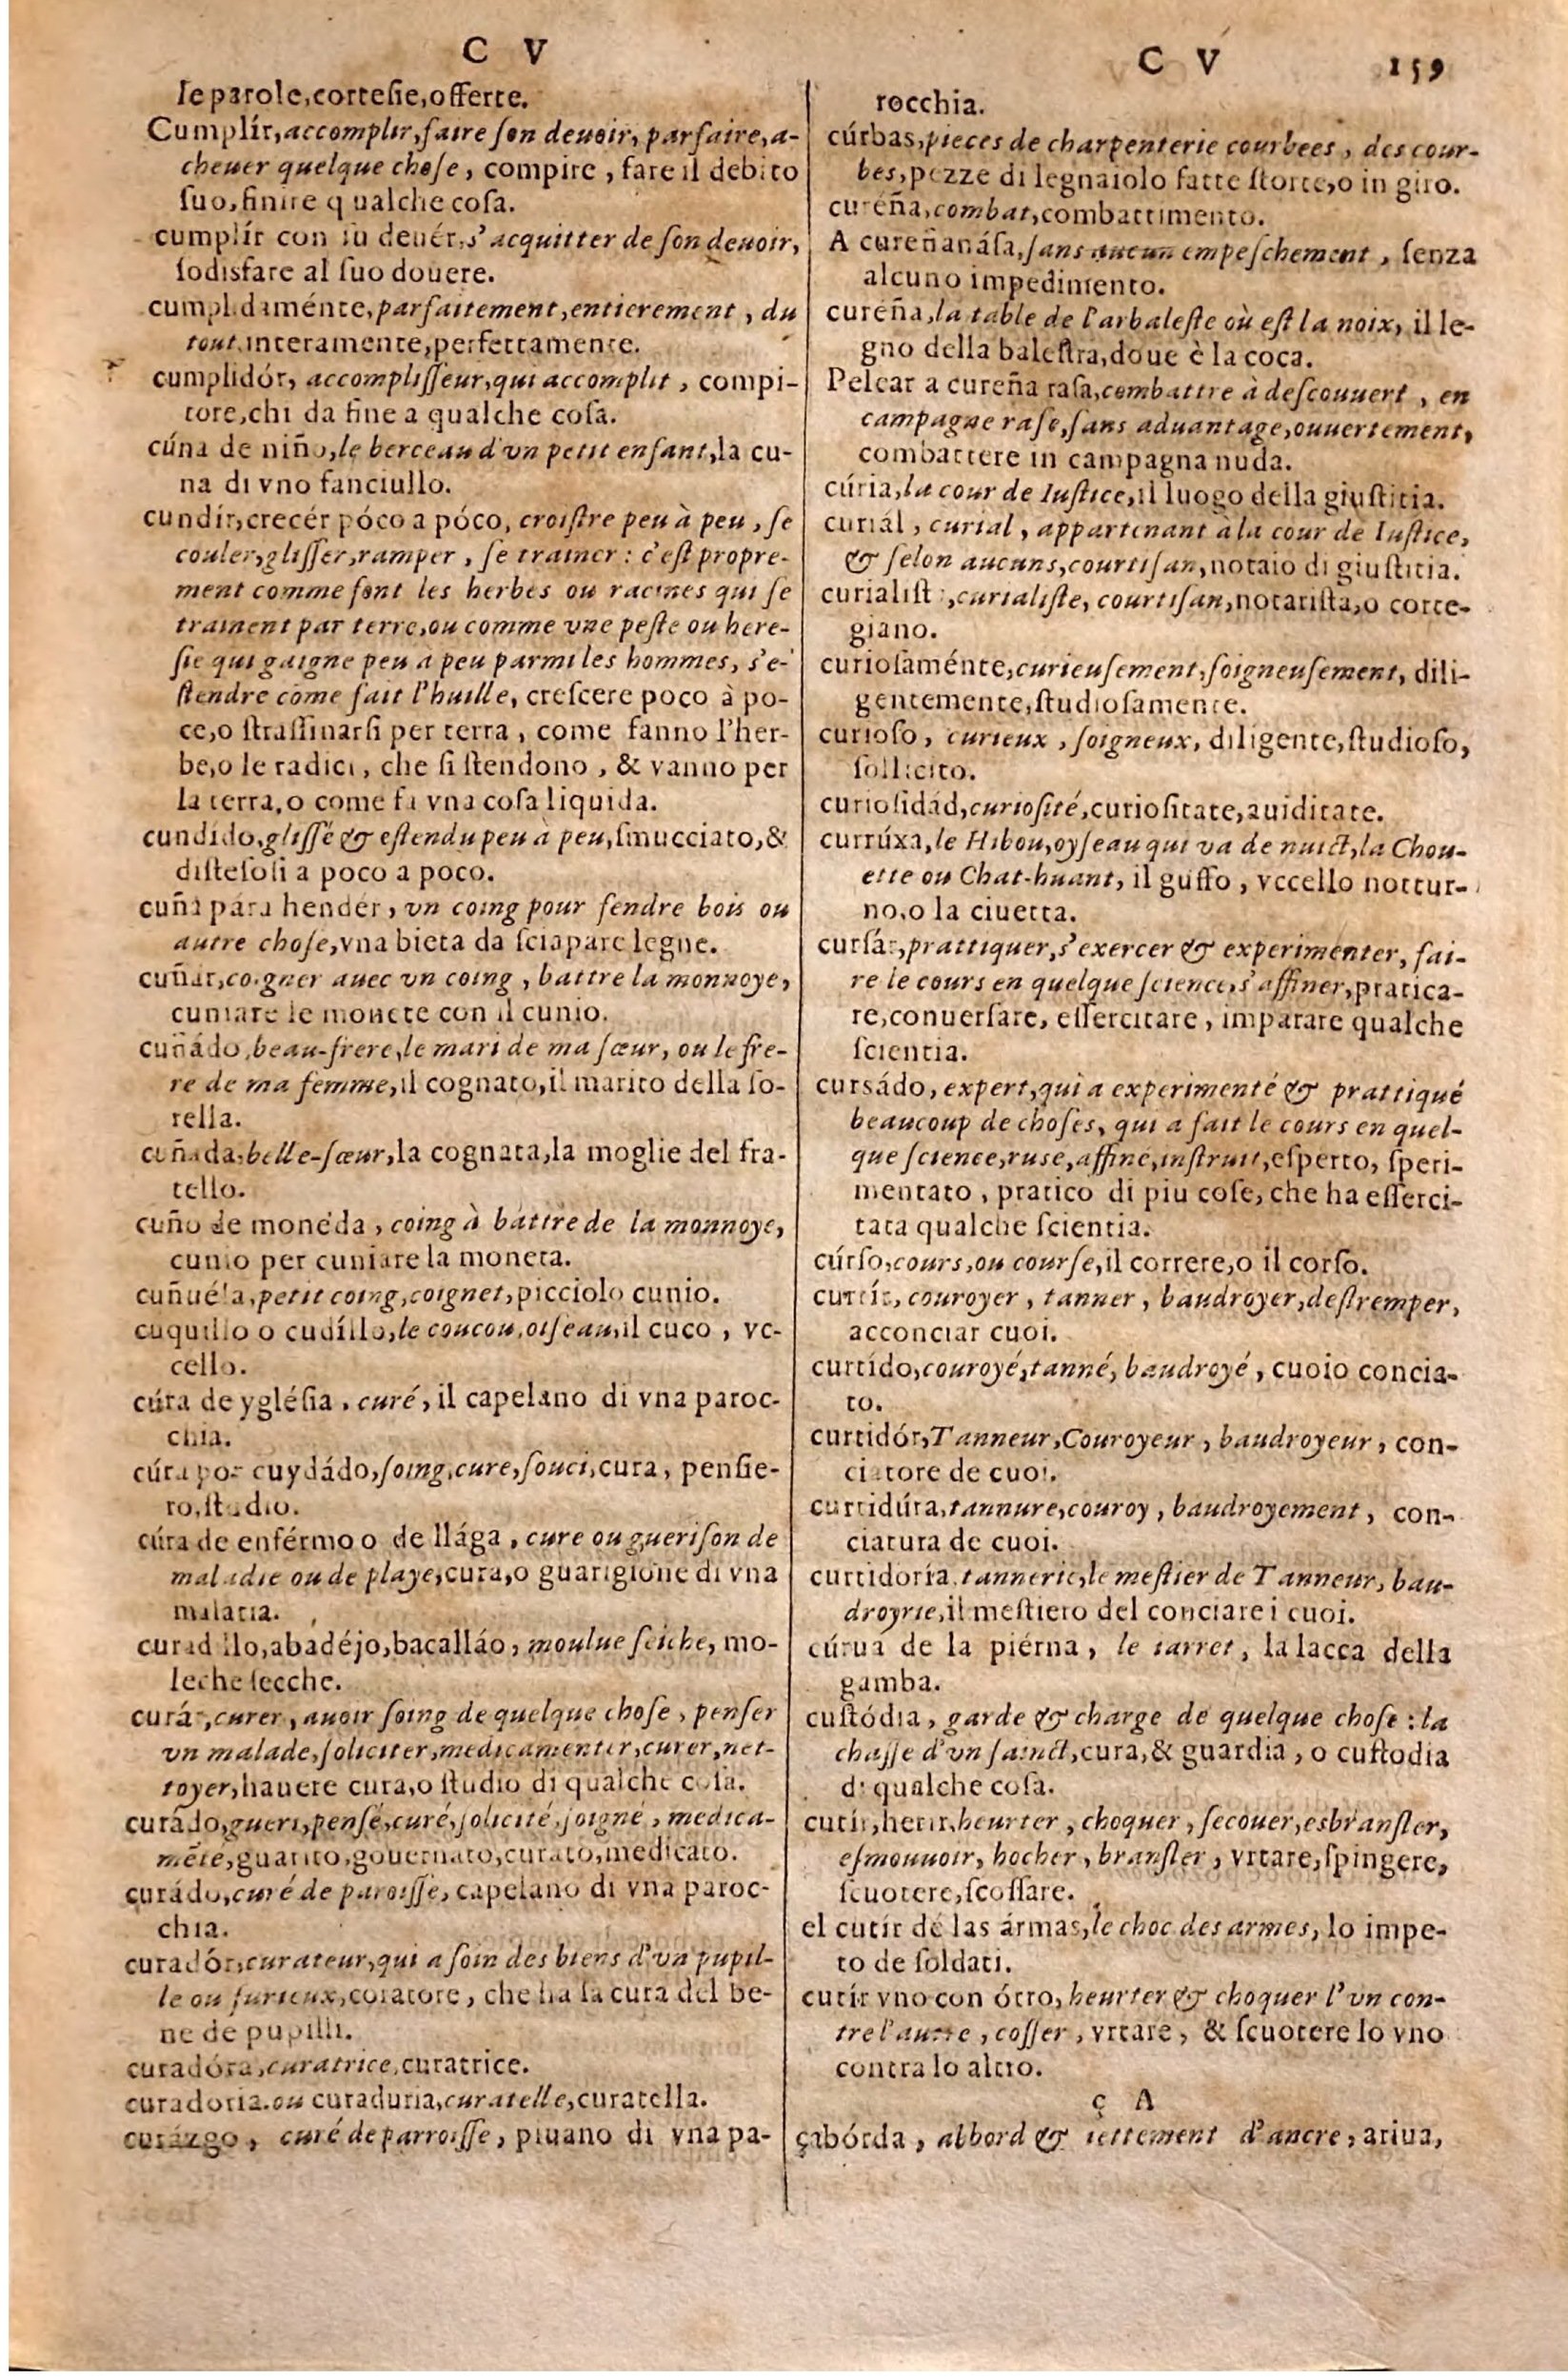 C V
le parole,cortesie,offerte.
Cumplír,accomplir,faire son deuoir, parfaire,a-
cheuer quelque chose, compire, fare il debito
suo,finire qualche cosa.
cumplír con su deuér,s'acquitter de son deuoir,
sodisfare al suo douere.
cumplidaménte,parfaitement,entierement, du
tout,interamente,perfettamente.
cumplidór, accomplisseur,qui accomplit, compi-
tore,chi da fine a qualche cosa.
cúna de niño,le berceau d'vn petit enfant,la cu-
na di vno fanciullo.
cundír,crecér póco a póco, croistre peu à peu, se
couler,glisser,ramper, se trainer: c'est propre-
ment comme font les herbes ou racines qui se
trainent par terre,ou comme vne peste ou here-
sie qui gaigne peu a peu parmi les hommes, s'e-
stendre cõme fait l'huille, crescere poco à po-
ce,o strassinarsi per terra, come fanno l'her-
be,o le radici, che si stendono, & vanno per
la terra,o come fa vna cosa liquida.
cundído,glissé & estendu peu à peu,smucciato,&
distesosi a poco a poco.
cuña pára hendér, vn coing pour fendre bois ou
autre chose,vna bieta da sciapare legne.
cuñár,coigner auec vn coing, battre la monnoye,
cuniare le monete con il cunio.
cuñádo,beau-frere,le mari de ma sœur, ou le fre-
re de ma femme,il cognato,il marito della so-
rella.
cuñada,belle-sœur,la cognata,la moglie del fra-
tello.
cuño de monéda, coing à battre de la monnoye,
cunio per cuniare la moneta.
cuñuéla,petit coing,coignet,picciolo cunio.
cuquillo o cudíllo,le coucou,oiseau,il cuco, vc-
cello.
cúra de yglésia, curé, il capelano di vna paroc-
chia.
cúra por cuydádo,soing,cure,souci,cura, pensie-
ro,studio.
cúra de enférmo o de llága, cure ou guerison de
maladie ou de playe,cura,o guarigione di vna
malatia.
curadillo,abadéjo,bacalláo, moulue seiche, mo-
leche secche.
curár,curer, auoir soing de quelque chose, penser
vn malade,soliciter,medicamenter,curer,net-
toyer,hauere cura,o studio di qualche cosa.
curádo,gueri,pensé,curé,solicité,soigné, medica-
mẽté,guarito,gouernato,curato,medicato.
curádo,curé de paroisse, capelano di vna paroc-
chia.
curadór,curateur,qui a soin des biens d'vn pupil-
le ou furieux,coratore, che ha la cura del be-
ne de pupilli.
curadóra,curatrice,curatrice.
curadoria.ou curaduria,curatelle,curatella.
curázgo, curé de parroisse, piuano di vna pa-
C V 159
rocchia.
cúrbas,pieces de charpenterie courbees, des cour-
bes,pezze di legnaiolo fatte storte,o in giro.
cureña,combat,combattimento.
A cureñanása,sans aucun empeschement, senza
alcuno impedimento.
cureña,la table de l'arbaleste où est la noix, il le-
gno della balestra,doue è la coca.
Pelear a cureña rasa,combattre à descouuert, en
campagne rase,sans aduantage,ouuertement,
combattere in campagna nuda.
cúria,la cour de Iustice,il luogo della giustitia.
curiál, curial, appartenant à la cour de Iustice,
& selon aucuns,courtisan,notaio di giustitia.
curialist,curialiste, courtisan,notarista,o corte-
giano.
curiosaménte,curieusement,soigneusement, dili-
gentemente,studiosamente.
curioso, curieux, soigneux, diligente,studioso,
sollicito.
curiosidád,curiosité,curiositate,auiditate.
currúxa,le Hibou,oyseau qui va de nuict,la Chou-
ette ou Chat-huant, il guffo, vccello nottur-
no,o la ciuetta.
cursár,prattiquer,s'exercer & experimenter, fai-
re le cours en quelque science,s'affiner,pratica-
re,conuersare, essercitare, imparare qualche
scientia.
cursádo, expert,qui a experimenté & prattiqué
beaucoup de choses, qui a fait le cours en quel-
que science,ruse,affiné,instruit,esperto, speri-
mentato, pratico di piu cose, che ha esserci-
tata qualche scientia.
cúrso,cours,ou course,il correre,o il corso.
curtír, couroyer, tanner, baudroyer,destremper,
acconciar cuoi.
curtído,couroyé,tanné, baudroyé, cuoio concia-
to.
curtidór,Tanneur,Couroyeur, baudroyeur, con-
ciatore de cuoi.
curtidúra,tannure,couroy, baudroyement, con-
ciatura de cuoi.
curtidoría,tannerie,le mestier de Tanneur, bau-
droyrie,il mestiero del conciare i cuoi.
cúrua de la piérna, le iarret, la lacca della
gamba.
custódia, garde & charge de quelque chose: la
chasse d'vn sainct,cura,& guardia, o custodia
di qualche cosa.
cutír,herir,heurter, choquer, secouer,esbransler,
esmouuoir, hocher, bransler, vrtare,spingere,
scuotere,scossare.
el cutír dé las ármas,le choc des armes, lo impe-
to de soldati.
cutír vno con ótro, heurter & choquer l'vn con-
tre l'autre, cosser, vrtare, & scuotere lo vno
contra lo altro.
ç A
çabórda, abbord & iettement d'ancre, ariua,